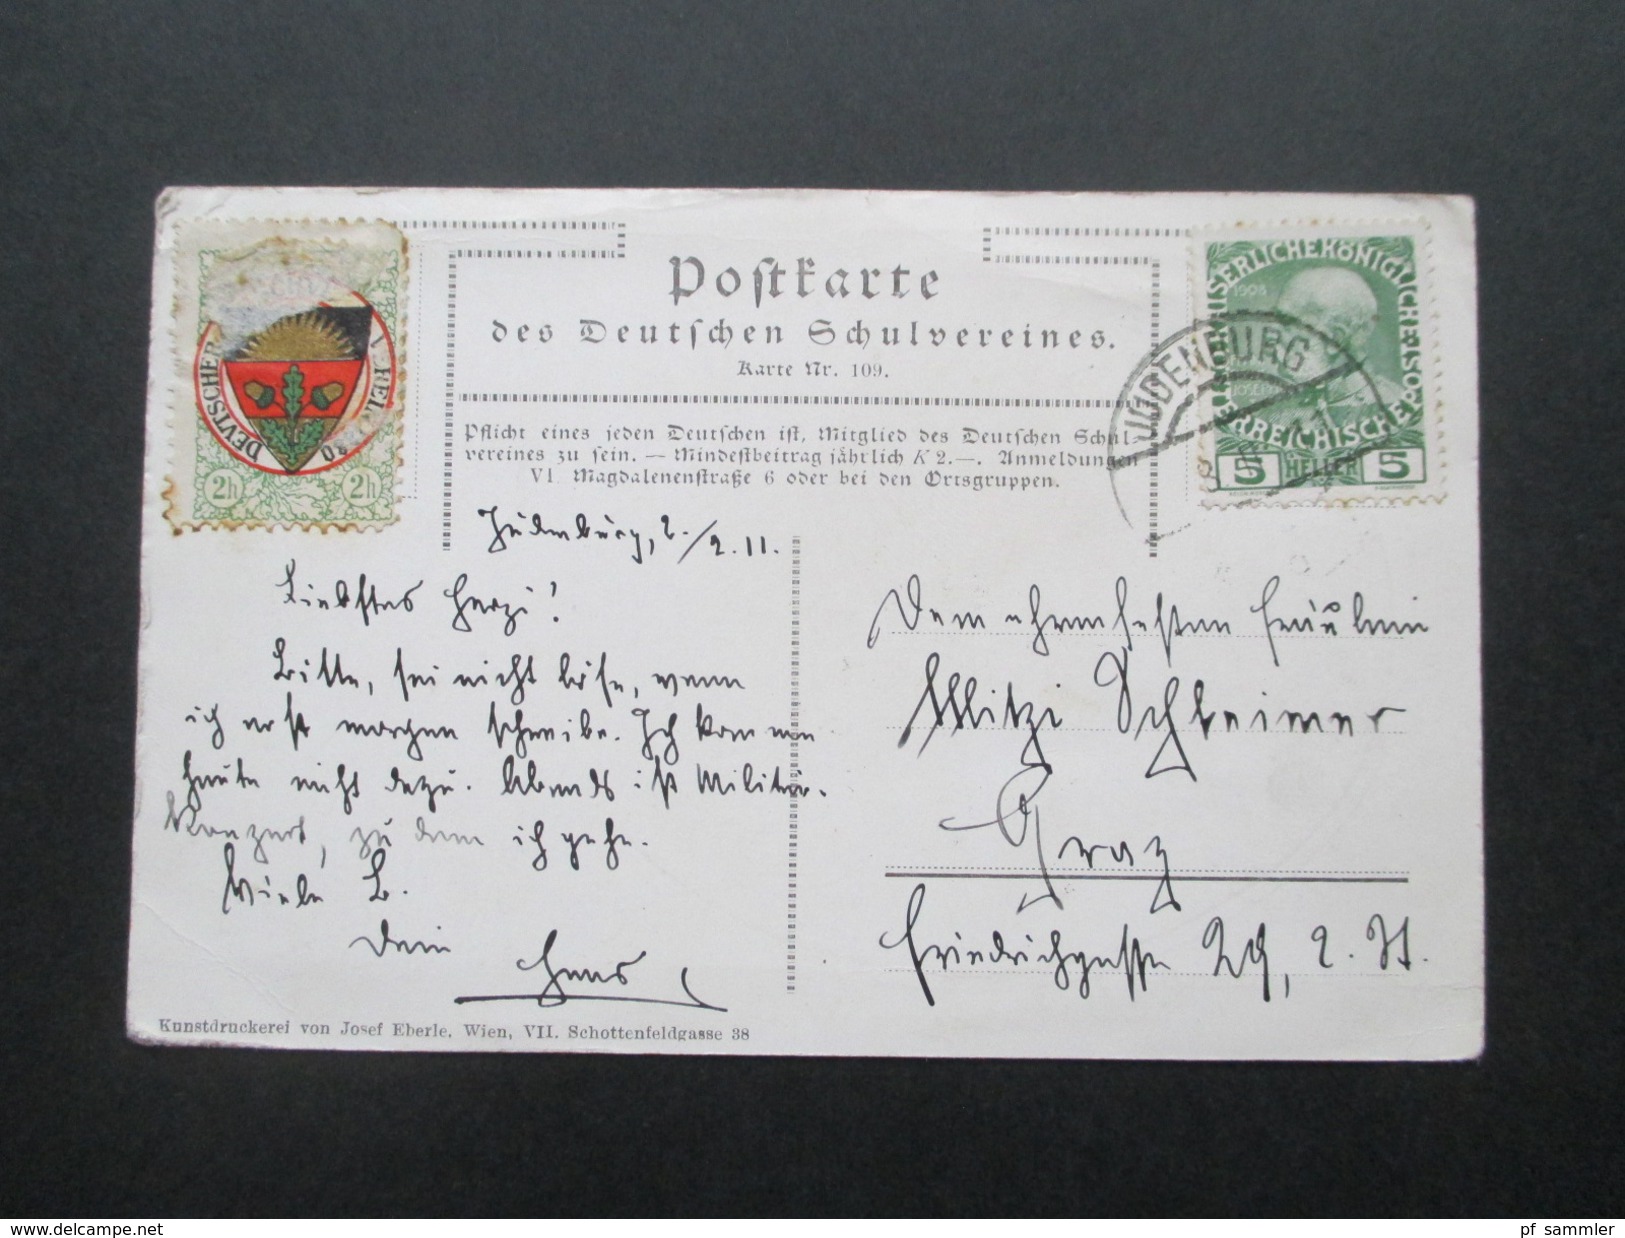 Postkarte
des Deutschen Schulvereines.
Karte Nr. 109.
Pflicht eines jeden Deutschen ist, Mitglied des Deutschen Schul-
vereines zu sein. — Mindestbeitrag jährlich K 2.—. Anmeldungen
VI. Magdalenenstraße 6 oder bei den Ortsgruppen.
DEVTSCHER
80
2h 2h
KAISERLICHEKÖNIGLICHE
1908
ÖSTERREICHISCHEPOST
5 HELLER 5
JUDENBURG
Judenburg, 2./2.11.
Liebstes Herzi!
Bitte, sei nicht böse, wenn
ich erst morgen schreibe. Ich komme
heute nicht dazu. Abends ist Militär-
Konzert, zu dem ich gehe.
Viele B.
Dein
Hans
Dem ehrenfesten Fräulein
Mitzi Schreimer
Graz
Friedrichgasse 29, 2. St.
Kunstdruckerei von Josef Eberle, Wien, VII. Schottenfeldgasse 38
delcampe.net
pf_sammler